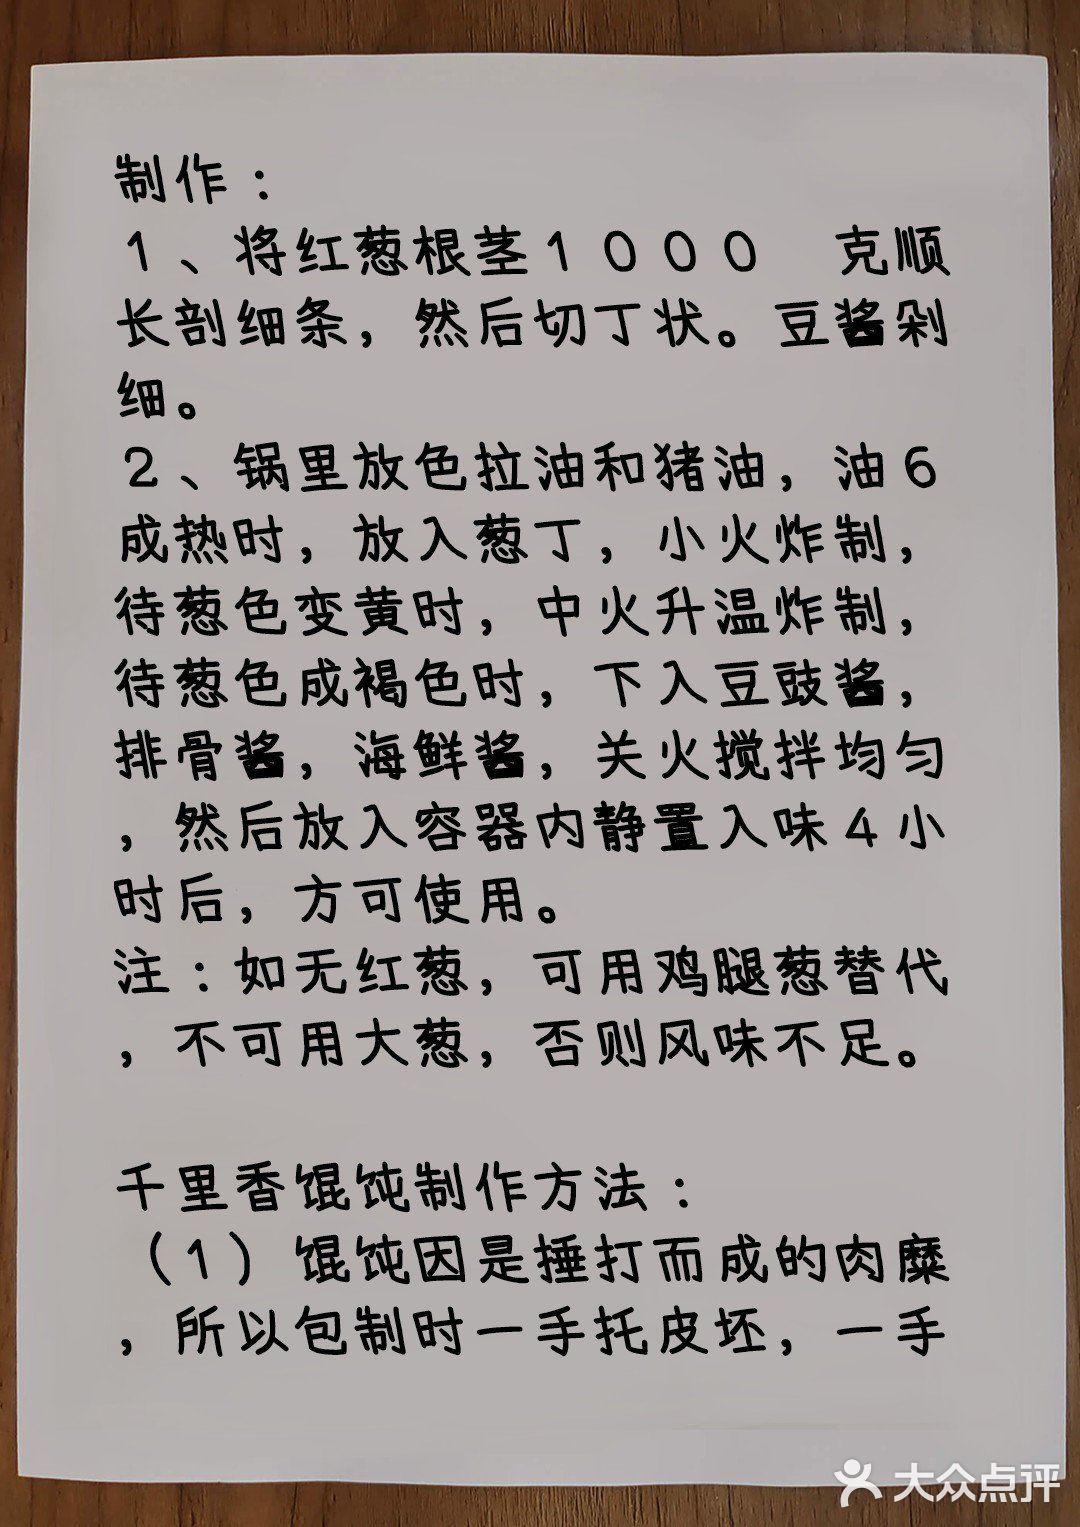 制作：
1、将红葱根茎1000 克顺
长剖细条，然后切丁状。豆酱剁
细。
2、锅里放色拉油和猪油，油6
成热时，放入葱丁，小火炸制，
待葱色变黄时，中火升温炸制，
待葱色成褐色时，下入豆豉酱，
排骨酱，海鲜酱，关火搅拌均匀
，然后放入容器内静置入味4小
时后，方可使用。
注：如无红葱，可用鸡腿葱替代
，不可用大葱，否则风味不足。
千里香馄饨制作方法：
（1）馄饨因是捶打而成的肉糜
，所以包制时一手托皮坯，一手
大众点评